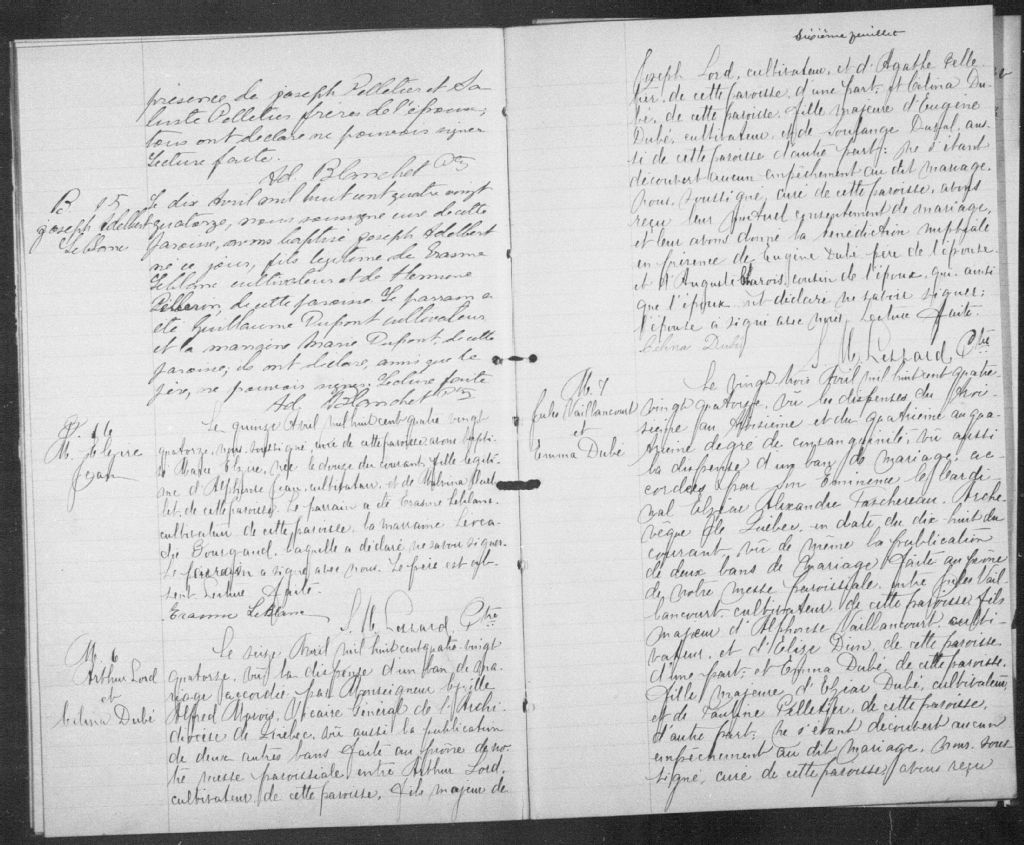 présence de joseph Pelletier et Sa
luste Pelletier frères de l'époux;
tous ont déclaré ne pouvoir signer
Lecture faite.
Ad. Blanchet Ptre
B. 15
joseph Adelbert
Leblanc
Le dix Avril mil huit cent quatre vingt
quatorze, nous soussigné curé de cette
paroisse, avons baptisé joseph Adelbert
né ce jour, fils légitime de Erasme
Leblanc cultivateur et de Hermine
Pelleran, de cette paroisse Le parrain a
été Guillaume Dupont cultivateur
et la marraine Marie Dupont de cette
paroisse; ils ont déclaré, ainsi que le
père, ne pouvoir signer. Lecture faite
Ad. Blanchet Ptre
B. 16
M. Elzire
Jean
Le quinze Avril mil huit cent quatre vingt
quatorze, nous, soussigné, curé de cette paroisse avons bapti-
sé Marie Elzire, née le douze du courant, fille légiti-
me d'Alphonse Jean, cultivateur, et de Malvina
de cette paroisse. Le parrain a été Erasme Leblanc
cultivateur de cette paroisse, la marraine Léoca-
die Gourgand, laquelle a déclaré ne savoir signer.
Le parrain a signé avec nous. Le père est ab-
sent. Lecture faite.
Erasme Leblanc
S. M. Lessard Ptre
M. 6
Arthur Lord
et
Célina Dubé
Le seize Avril mil huit cent quatre-vingt
quatorze, vu la dispense d'un ban de ma-
riage accordée par Monseigneur Cyrille
Alfred Marois, Vicaire Général de l'Archi-
diocèse de Québec, vu aussi la publication
de deux autres bans faite au prône de no-
tre messe paroissiale, entre Arthur Lord,
cultivateur de cette paroisse, fils majeur de
Dixième feuillet
Joseph Lord, cultivateur, et d'Agathe Pelle-
tier, de cette paroisse, d'une part; et Célina Du-
bé, de cette paroisse, fille majeure d'Eugène
Dubé, cultivateur, et de Soulange Duval, aus-
si de cette paroisse d'autre part; ne s'étant
découvert aucun empêchement au dit mariage,
Nous, soussigné, curé de cette paroisse, avons
reçu leur mutuel consentement de mariage,
et leur avons donné la bénédiction nuptiale
en présence de Eugène Dubé père de l'épouse
et d'Auguste Marois, cousin de l'époux, qui ainsi
que l'époux ont déclaré ne savoir signer;
l'épouse a signé avec nous. Lecture faite.
Celina Dubé
S. M. Lessard, Ptre
M. 7
Jules Vaillancourt
et
Emma Dubé
Le vingt trois Avril mil huit cent quatre-
vingt quatorze, vu les dispenses du troi-
sième au troisième et du quatrième au qua-
trième degré de consanguinité, vu aussi
la dispense d'un ban de mariage, ac-
cordées par Son Eminence le Cardi-
nal Elzéar Alexandre Taschereau, Arche-
vêque de Québec, en date du dix huit du
courant, vu de même la publication
de deux bans de mariage faite au prône
de notre messe paroissiale, entre Jules Vail-
lancourt, cultivateur, de cette paroisse fils
majeur d'Alphonse Vaillancourt, culti-
vateur, et d'Elise Dion, de cette paroisse
d'une part; et Emma Dubé, de cette paroisse,
fille majeure d'Elzéar Dubé, cultivateur,
et de Pauline Pelletier, de cette paroisse,
d'autre part; ne s'étant découvert aucun
empêchement au dit mariage, Nous, sous-
signé, curé de cette paroisse, avons reçu